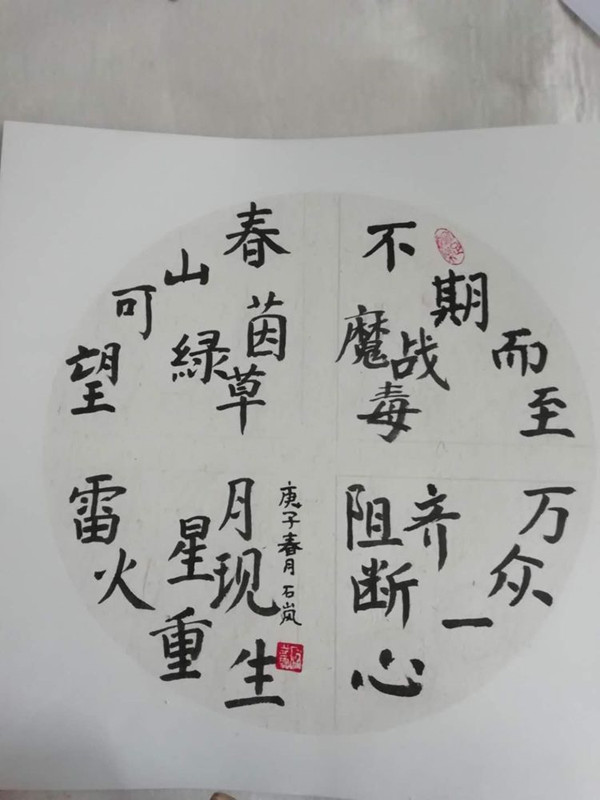 不期而至
战魔毒
万众一心
齐阻断
雷火重生
星月现
春山可望
綠茵草
庚子春月 石岚